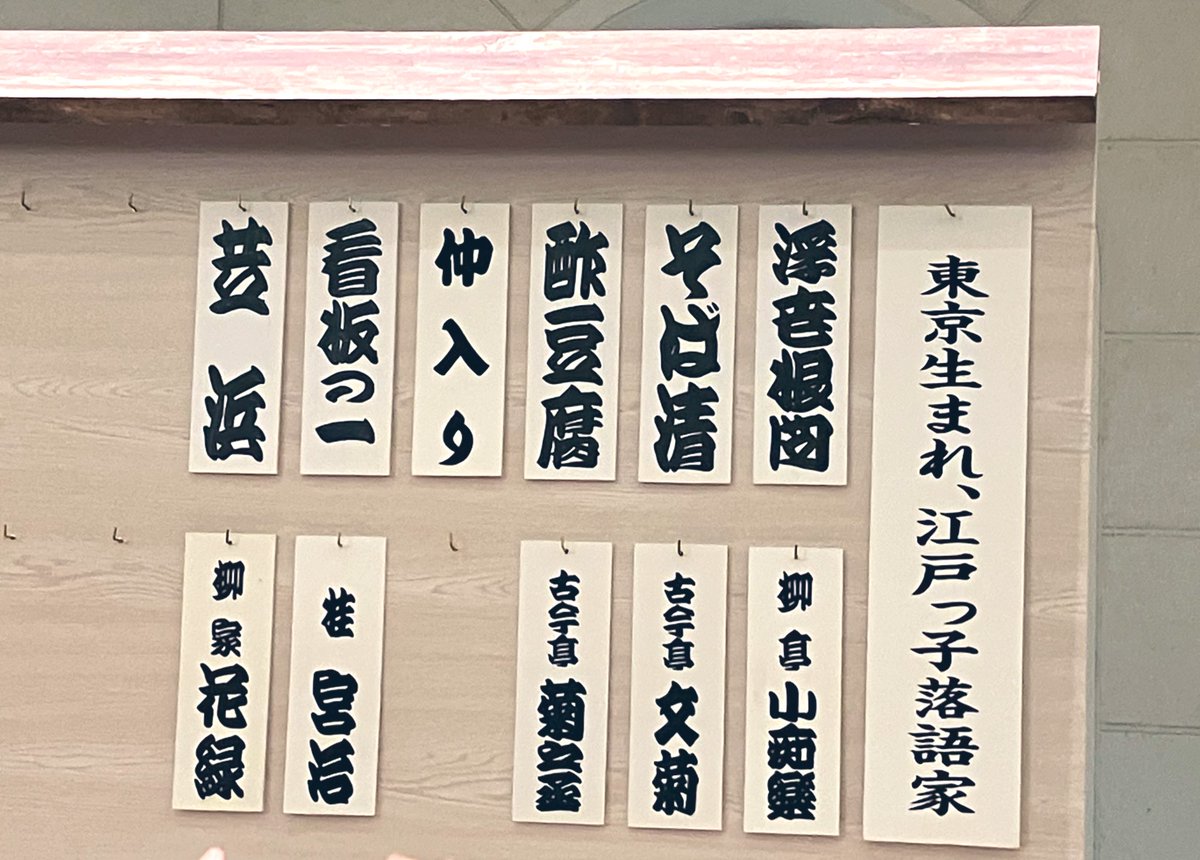 東京生まれ、江戸っ子落語家
浮世根問
柳亭 小痴樂
そば清
古今亭 文菊
酢豆腐
古今亭 菊之丞
仲入り
看板の一
桂 宮治
芝浜
柳家 花緑